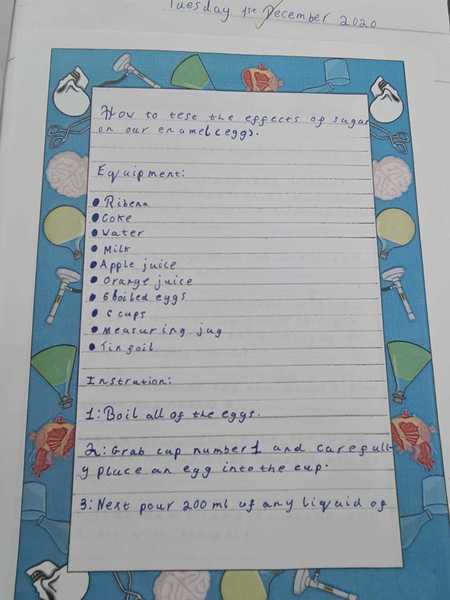 Tuesday 1st December 2020
How to test the effects of sugar
on our enamel (eggs).
Equipment:
• Ribena
• Coke
• Water
• Milk
• Apple juice
• Orange juice
• 6 boiled eggs
• 6 cups
• Measuring jug
• Tinfoil
Instration:
1: Boil all of the eggs.
2: Grab cup number 1 and carefull-
y place an egg into the cup.
3: Next pour 200 ml of any liquid of